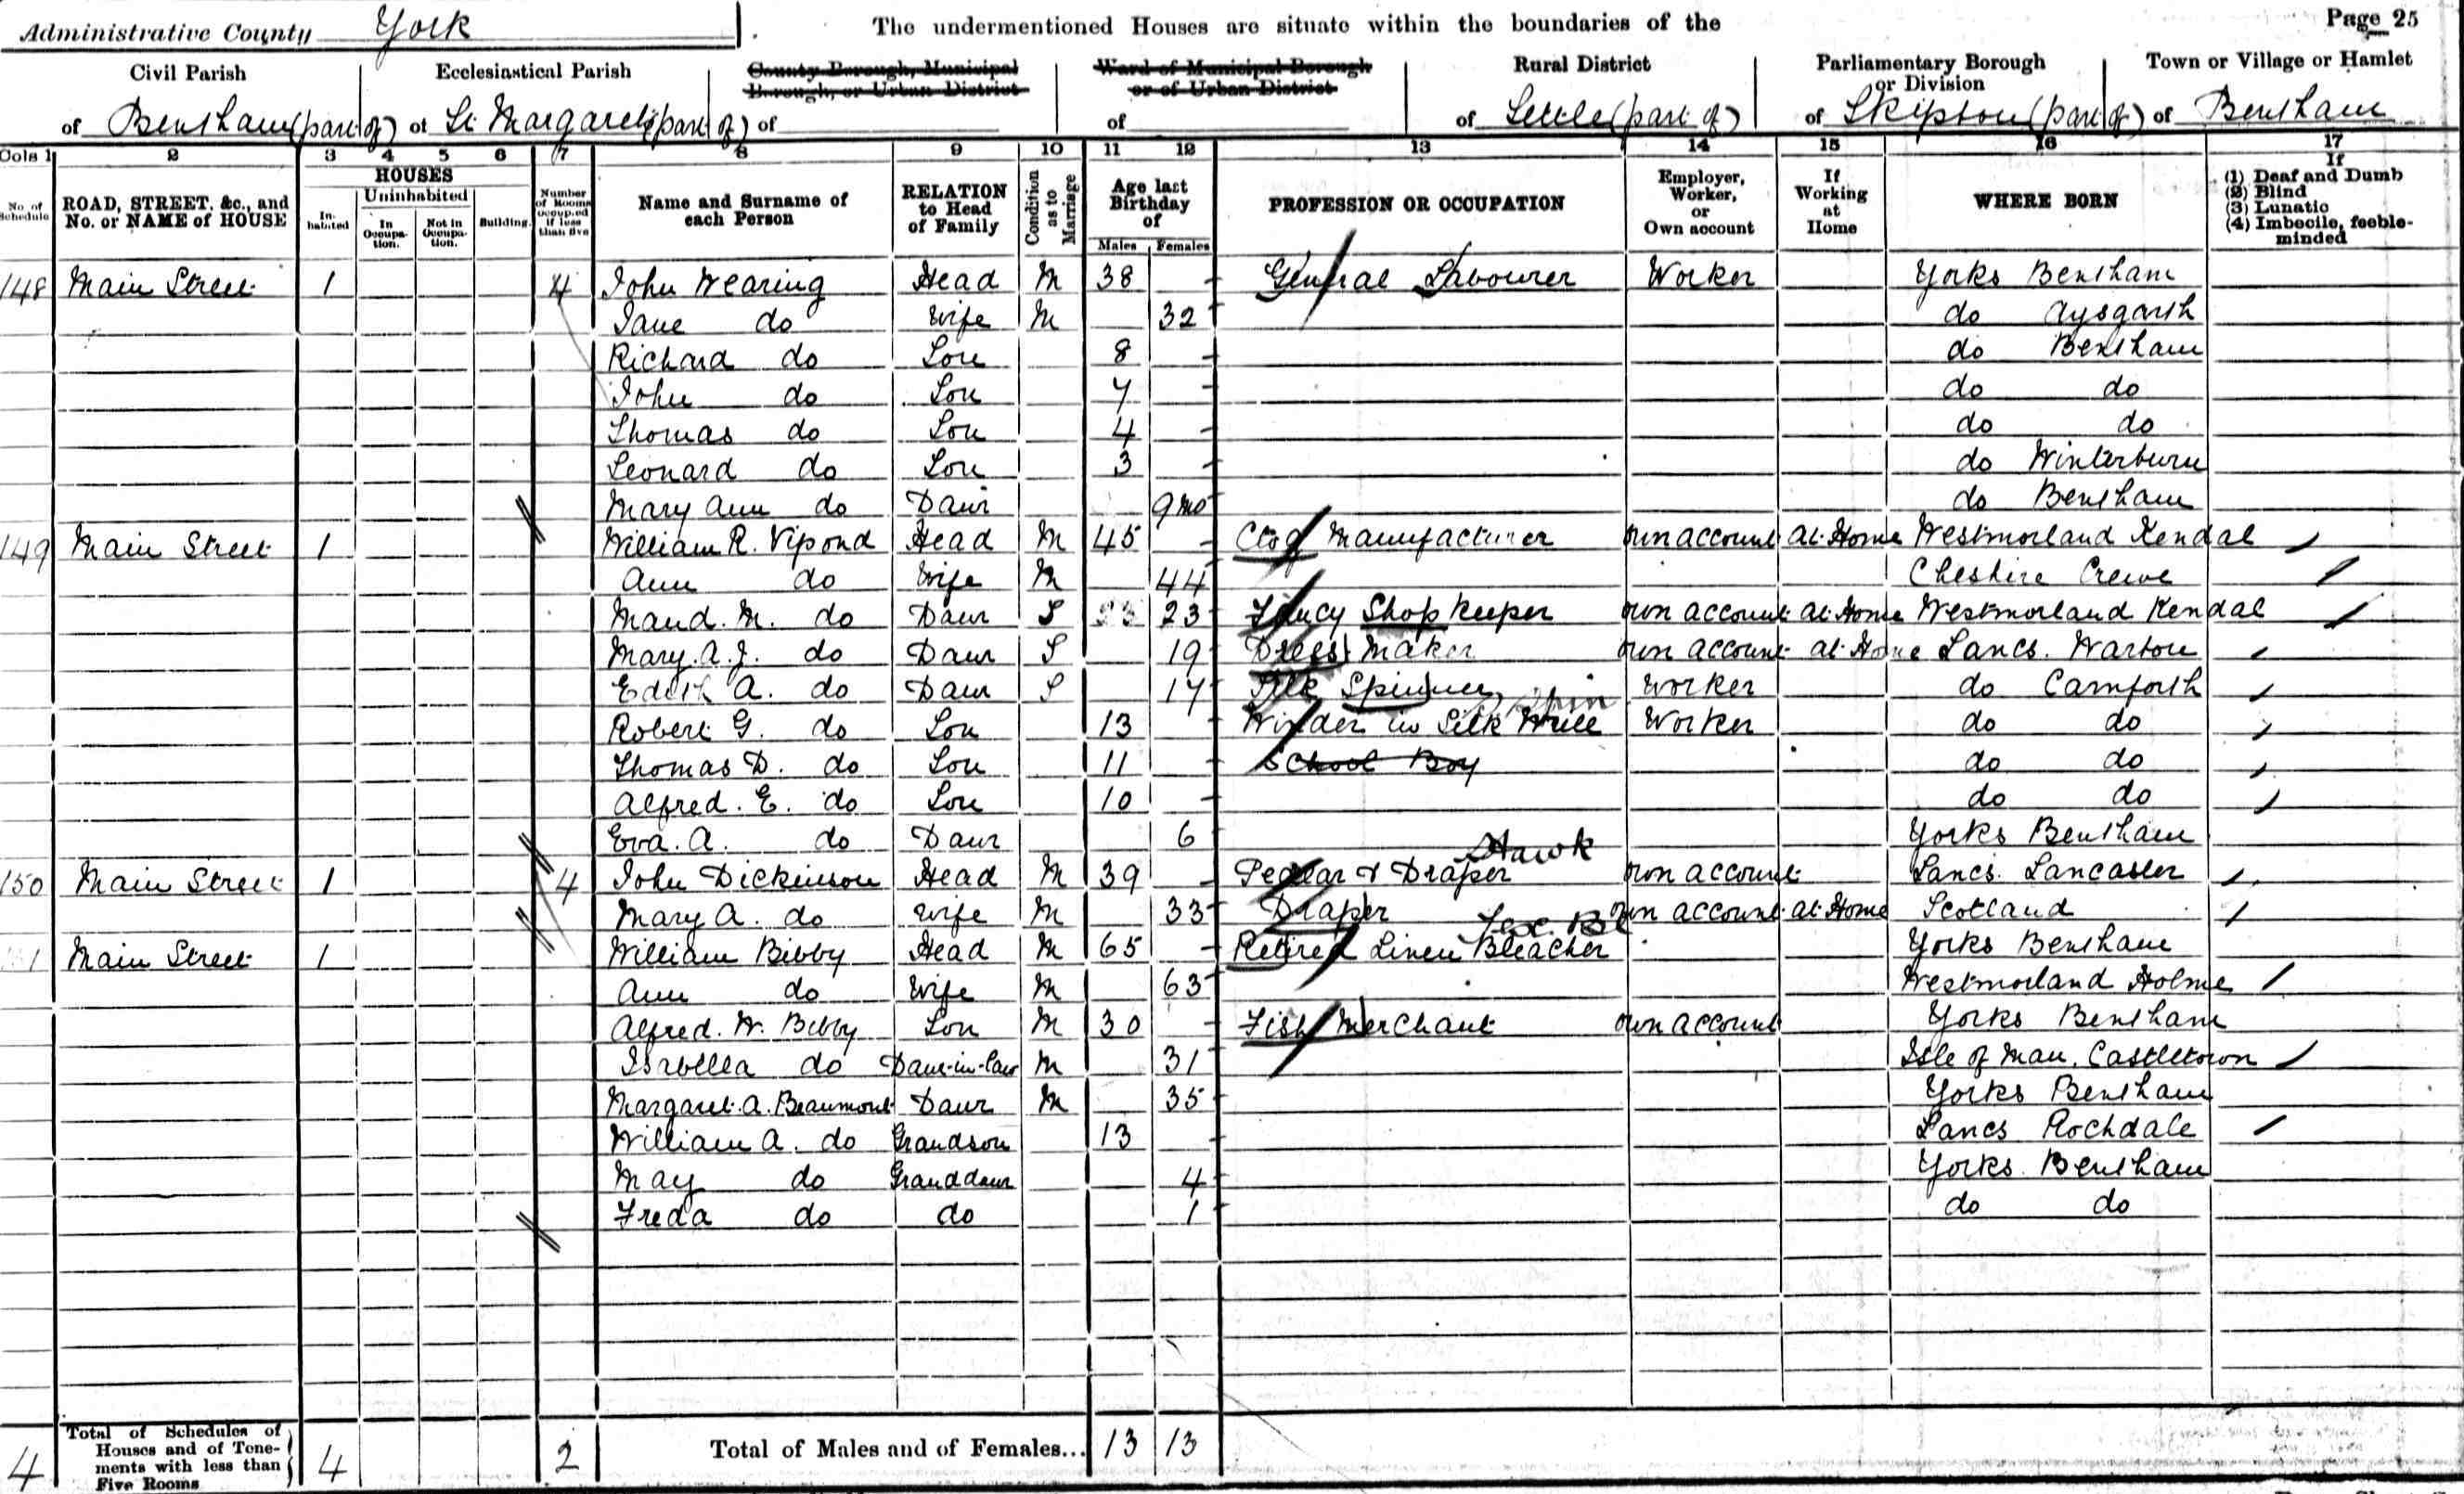 Administrative County York The undermentioned Houses are situate within the boundaries of the Page 25
Civil Parish Ecclesiastical Parish County Borough, Municipal Borough, or Urban District Ward of Municipal Borough or of Urban District Rural District Parliamentary Borough or Division Town or Village or Hamlet
of Bentham (part of) of St Margarets (part of) of of of Settle (part of) of Skipton (part of) of Bentham
Cols 1 2 3 4 5 6 7 8 9 10 11 12 13 14 15 16 17
No. of Schedule ROAD, STREET, &c., and No. or NAME of HOUSE HOUSES In-habited Uninhabited In Occupa-tion. Not in Occupa-tion. Building. Number of Rooms occupied if less than five Name and Surname of each Person RELATION to Head of Family Condition as to Marriage Age last Birthday of Males Females PROFESSION OR OCCUPATION Employer, Worker, or Own account If Working at Home WHERE BORN If (1) Deaf and Dumb (2) Blind (3) Lunatic (4) Imbecile, feeble-minded
148 Main Street 1 4 John Wearing Head M 38 General Labourer Worker Yorks Bentham
Jane do Wife M 32 do Aysgarth
Richard do Son 8 do Bentham
John do Son 7 do do
Thomas do Son 4 do do
Leonard do Son 3 do Winterburn
Mary Ann do Daur 9 mo do Bentham
149 Main Street 1 William R. Vipond Head M 45 Clog Manufacturer own account At Home Westmorland Kendal
Ann do Wife M 44 Cheshire Crewe
Maud. M. do Daur S 23 Fancy Shop Keeper own account at Home Westmorland Kendal
Mary. A. J. do Daur S 19 Dress Maker own account at Home Lancs. Warton
Edith A. do Daur S 17 Silk Spinner Worker do Carnforth
Spin
Robert G. do Son 13 Winder in Silk Mill Worker do do
Thomas D. do Son 11 School Boy do do
Alfred. E. do Son 10 do do
Eva. A. do Daur 6 Yorks Bentham
Hawk
150 Main Street 1 4 John Dickinson Head M 39 Pedlar & Draper own account Lancs. Lancaster
Mary A. do Wife M 33 Draper own account at Home Scotland
1 Main Street 1 William Bibby Head M 65 Retired Linen Bleacher Yorks Bentham
Ann do Wife M 63 Westmorland Holme
Alfred. W. Bibby Son M 30 Fish Merchant own account Yorks Bentham
Isabella do Daur-in-law M 31 Isle of Man. Castletown
Margaret. A. Beaumont Daur M 35 Yorks Bentham
William A. do Grandson 13 Lancs Rochdale
May do Granddaur 4 Yorks. Bentham
Freda do do 1 do do
4 Total of Schedules of Houses and of Tene-ments with less than Five Rooms 4 2 Total of Males and of Females... 13 13